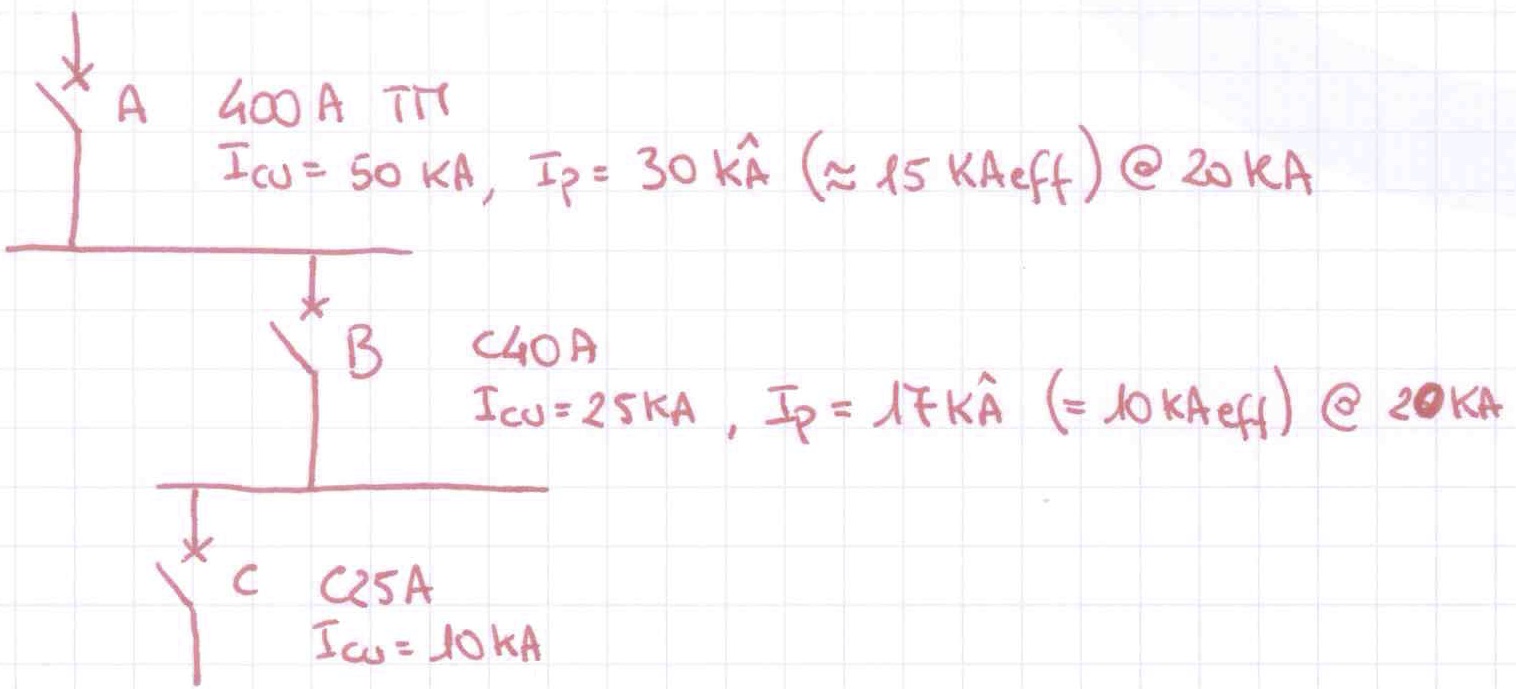 A 400A TM
Icu = 50 KA, Ip = 30 kÂ (≈ 15 KAeff) @ 20 KA
B C40A
Icu = 25KA, Ip = 17KÂ (= 10 KAeff) @ 20KA
C C25A
Icu = 10KA